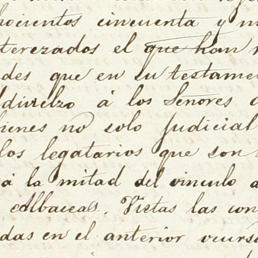 hocientos cincuenta y n
terezados el que han n
des que en su testame
dividzo á los Señores
ienes no solo judicial
los legatarios que son
á la mitad del vinculo a
albaceas. Vistas las con
das en el anterior ocurs